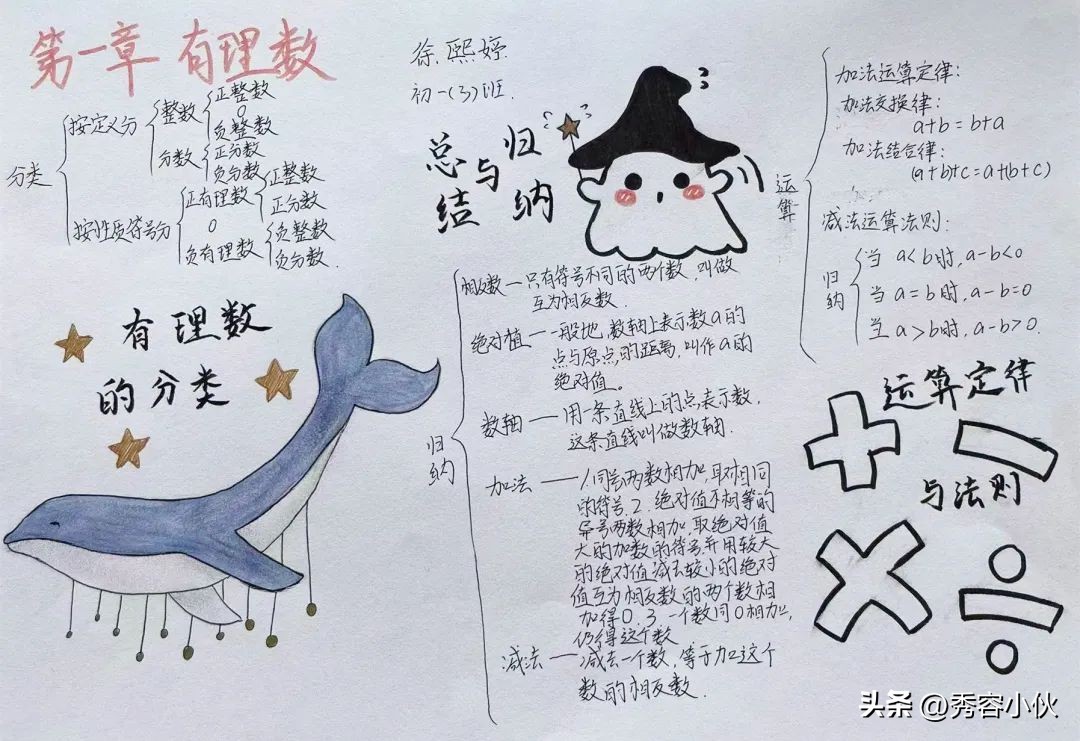 第一章 有理数
徐熙婷
初一(3)班.
分类
按定义分
整数
正整数
0
负整数
分数
正分数
负分数
按性质符号分
正有理数
正整数
正分数
0
负有理数
负整数
负分数.
有理数
的分类
总结
与
归纳
归纳
相反数一只有符号不同的两个数,叫做
互为相反数.
绝对值一一般地,数轴上表示数a的
点与原点的距离,叫作a的
绝对值。
数轴——用一条直线上的点表示数,
这条直线叫做数轴.
加法——1同号两数相加,取相同
的符号.2.绝对值不相等的
异号两数相加,取绝对值
大的加数的符号,并用较大
的绝对值减去较小的绝对
值互为相反数的两个数相
加得0.3.一个数同0相加,
仍得这个数
减法——减去一个数,等于加这个
数的相反数.
运算
加法运算定律:
加法交换律:
a+b=b+a
加法结合律:
(a+b)+c=a+(b+c)
减法运算法则:
归纳
当 a<b时,a-b<0
当 a=b时,a-b=0
当 a>b时,a-b>0.
运算定律
与法则
+ −
× ÷
头条 @秀容小伙